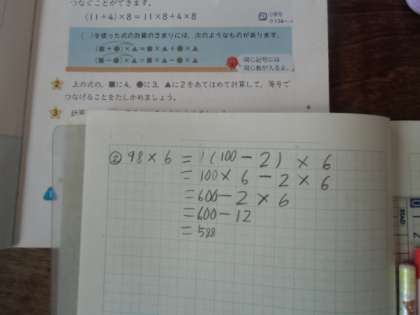 つなぐことができます。
(11+4)×8=11×8+4×8
( )を使った式の計算のきまりには、次のようなものがあります。
(■+●)×▲=■×▲+●×▲
(■-●)×▲=■×▲-●×▲
同じ記号には
同じ数が入るよ。
2 上の式の、■に4、●に3、▲に2をあてはめて計算して、等号で
つなげることをたしかめましょう。
3 計算
② 98×6=1(100-2)×6
=100×6-2×6
=600-2×6
=600-12
=588